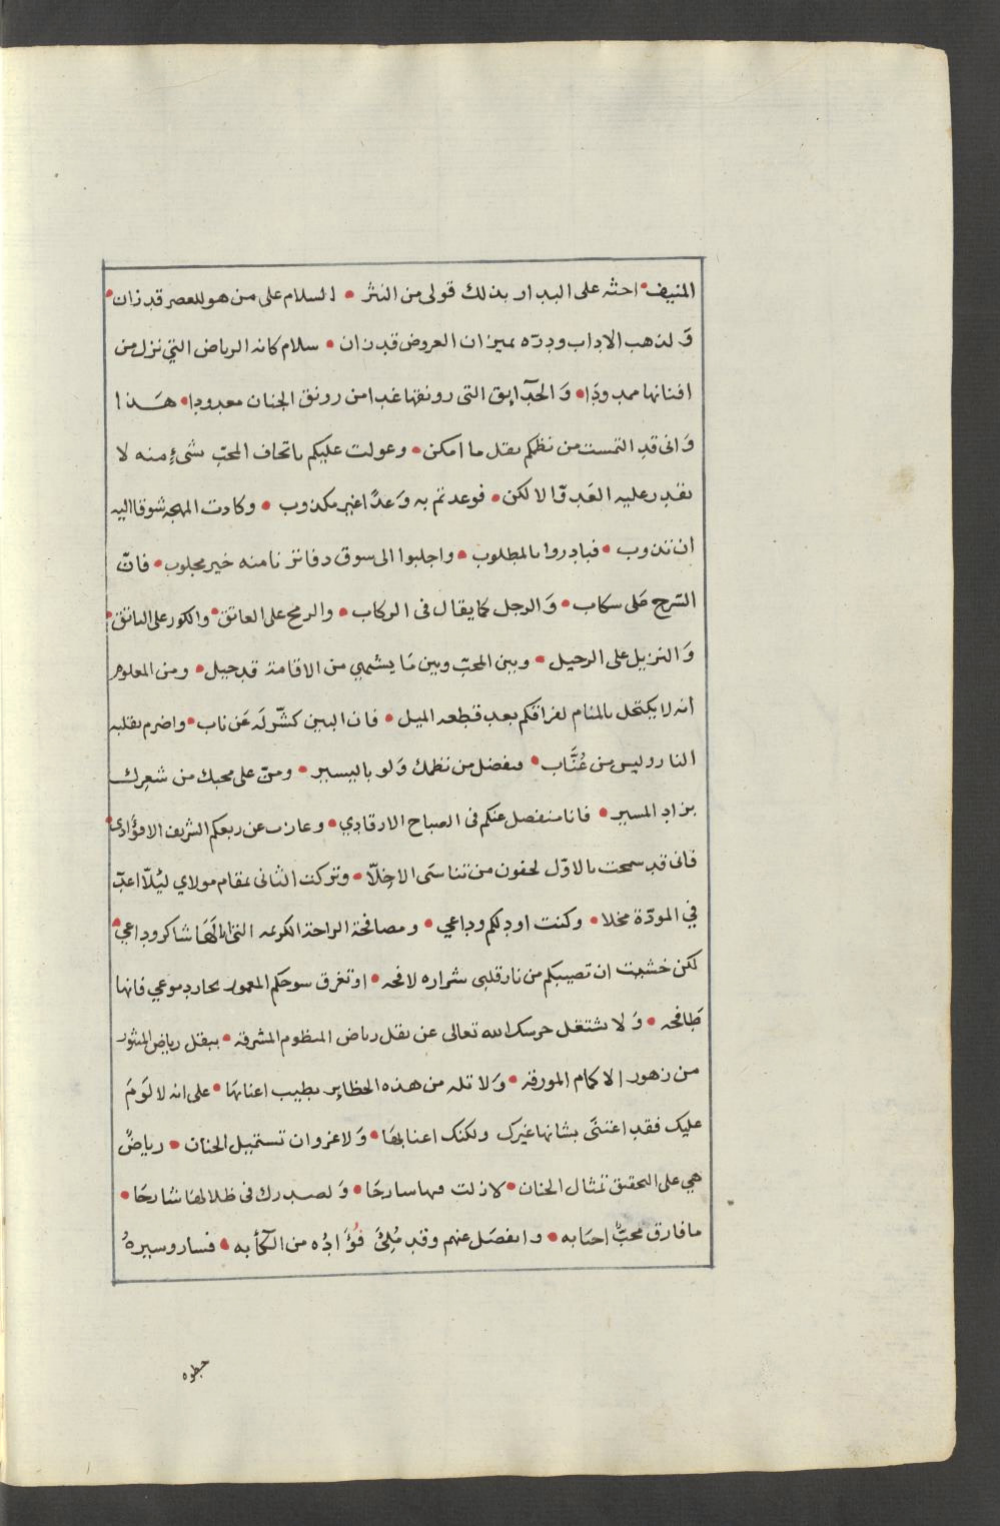 المنيف • احثه على البدار بذلك قولى من النثر • السلام على من هو للعصر قد زان •
وَلذهب الاداب ودرّه بميزان العروض قد زان • سلام كانه الرياض التي نزل من
افنانها ممدودَا • وَالحدآيق التى رونقها غدا من رونق الجنان معدودا • هَذا
وَانى قد التمست من نظمكم نقل ما امكن • وعولت عليكم باتحاف المحبّ بشىءٍ منه لا
نقدر عليه الصَدقة الا لكن • فوعدتم به وَعدًا غير مكذوب • وكادت المهجه شوقا اليه
ان تذوب • فبادروا بالمطلوب • واجلبوا الى سوق دفاترنا منه خير مجلوب • فانّ
السّرج عَلى سكاب • وَالرجل كما يقال فى الركاب • والرمح على العاتق • والكور على الناتق •
وَالنزيل على الرحيل • وبين المحبّ وبين مَا يشتهي من الاقامة قد حيل • ومن المعلوم
انه لا يكتحل بالمنام لفراقكم بعد قطعه الميل • فان البين كشّر لَه عَن ناب • واضرم بقلبه
النار وليس من عُنَّاب • فتفضل من نظمك وَلو باليسير • ومنّ على محبك من شعرك
بزاد المسير • فانا منفصل عنكم فى الصباح الا رقادي • وعازب عن ربعكم الشريف الا فؤادى •
فانى قد سمحت بالاوّل لجفون من تناسَى الاخلّا • وتركت الثانى بمقام مولاي ليُلّا اعدّ
في المودّة مخلا • وكنت اودّ لكم وداعي • ومصافحة الراحة الكريمه التى انا لَهَا شاكر وداعي •
لكن خشيت ان تصيبكم من نار قلبى شراره لافحه • او تغرق سوحكم المعمور بحار دموعي فانها
طَافحه • وَلا تشتغل حرسك الله تعالى عن نقل رياض المنظوم المشرقه • بنقل رياض المنثور
من زهور الاكمام المورقه • وَلا تله من هذه الحظاير بطيب اعنابهَا • على انه لا لَومَ
عليك فقد اعتنَى بشانها غيرك ولكنك اعنا بهَا • وَلا غرو ان تستميل الجنان • رياضٌ
هي على التحقيق تمثال الجنان • لا زلت فيها سارحَا • وَلصدرك فى ظلالهَا شارحَا •
ما فارق محبٌّ احبَابه • وانفصَل عنهم وقد مُلِئَ فُؤَادُه من الكأبه • فسار وسيرهُ
خطوه